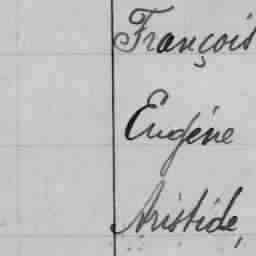 François
Eugène
Aristide,